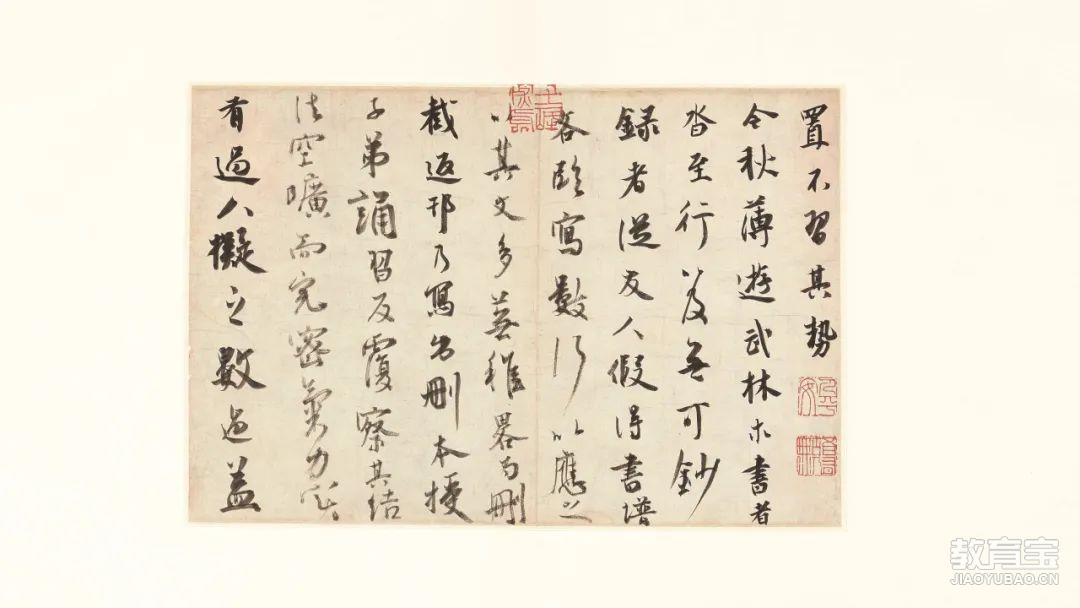 置不習其勢
今秋薄遊武林求書者
沓至行笈無可鈔
錄者從友人假得書譜
各臨寫數行以應之
以其文多蕪穢略為刪
截返邗乃寫出刪本授
子弟誦習反覆察其結
法空曠而完密氣力
有過人擬之數過益
教育宝
JIAOYUBAO.CN